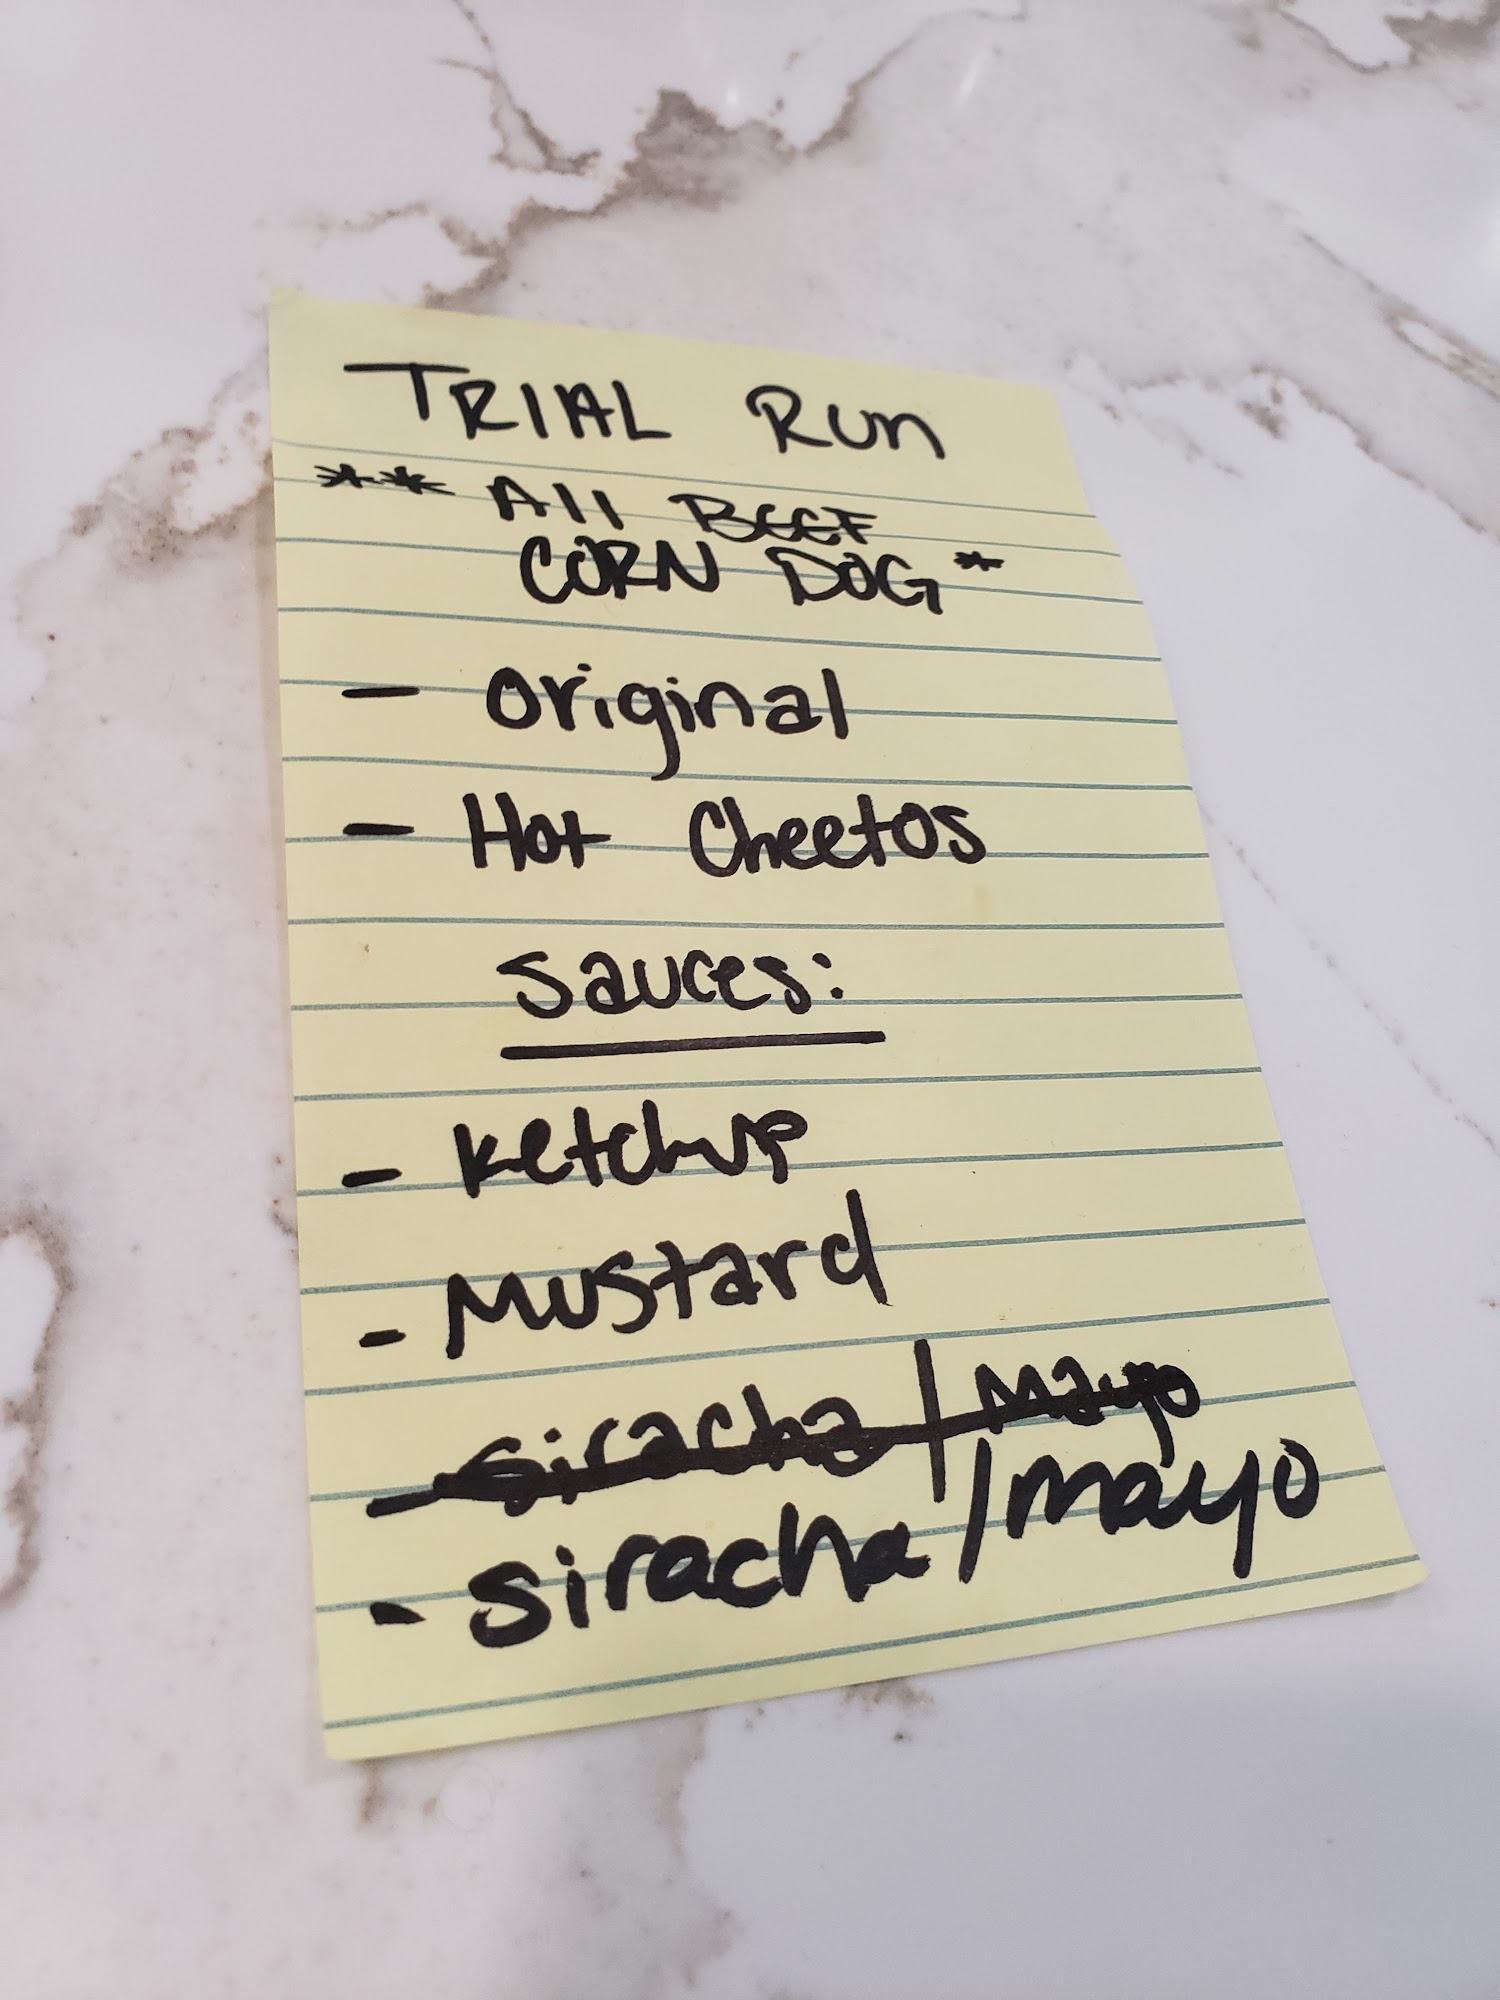 TRIAL Run
** All BEEF
CORN DOG *
- original
- Hot Cheetos
sauces:
- ketchup
- Mustard
- siracha / Mayo
- siracha / mayo